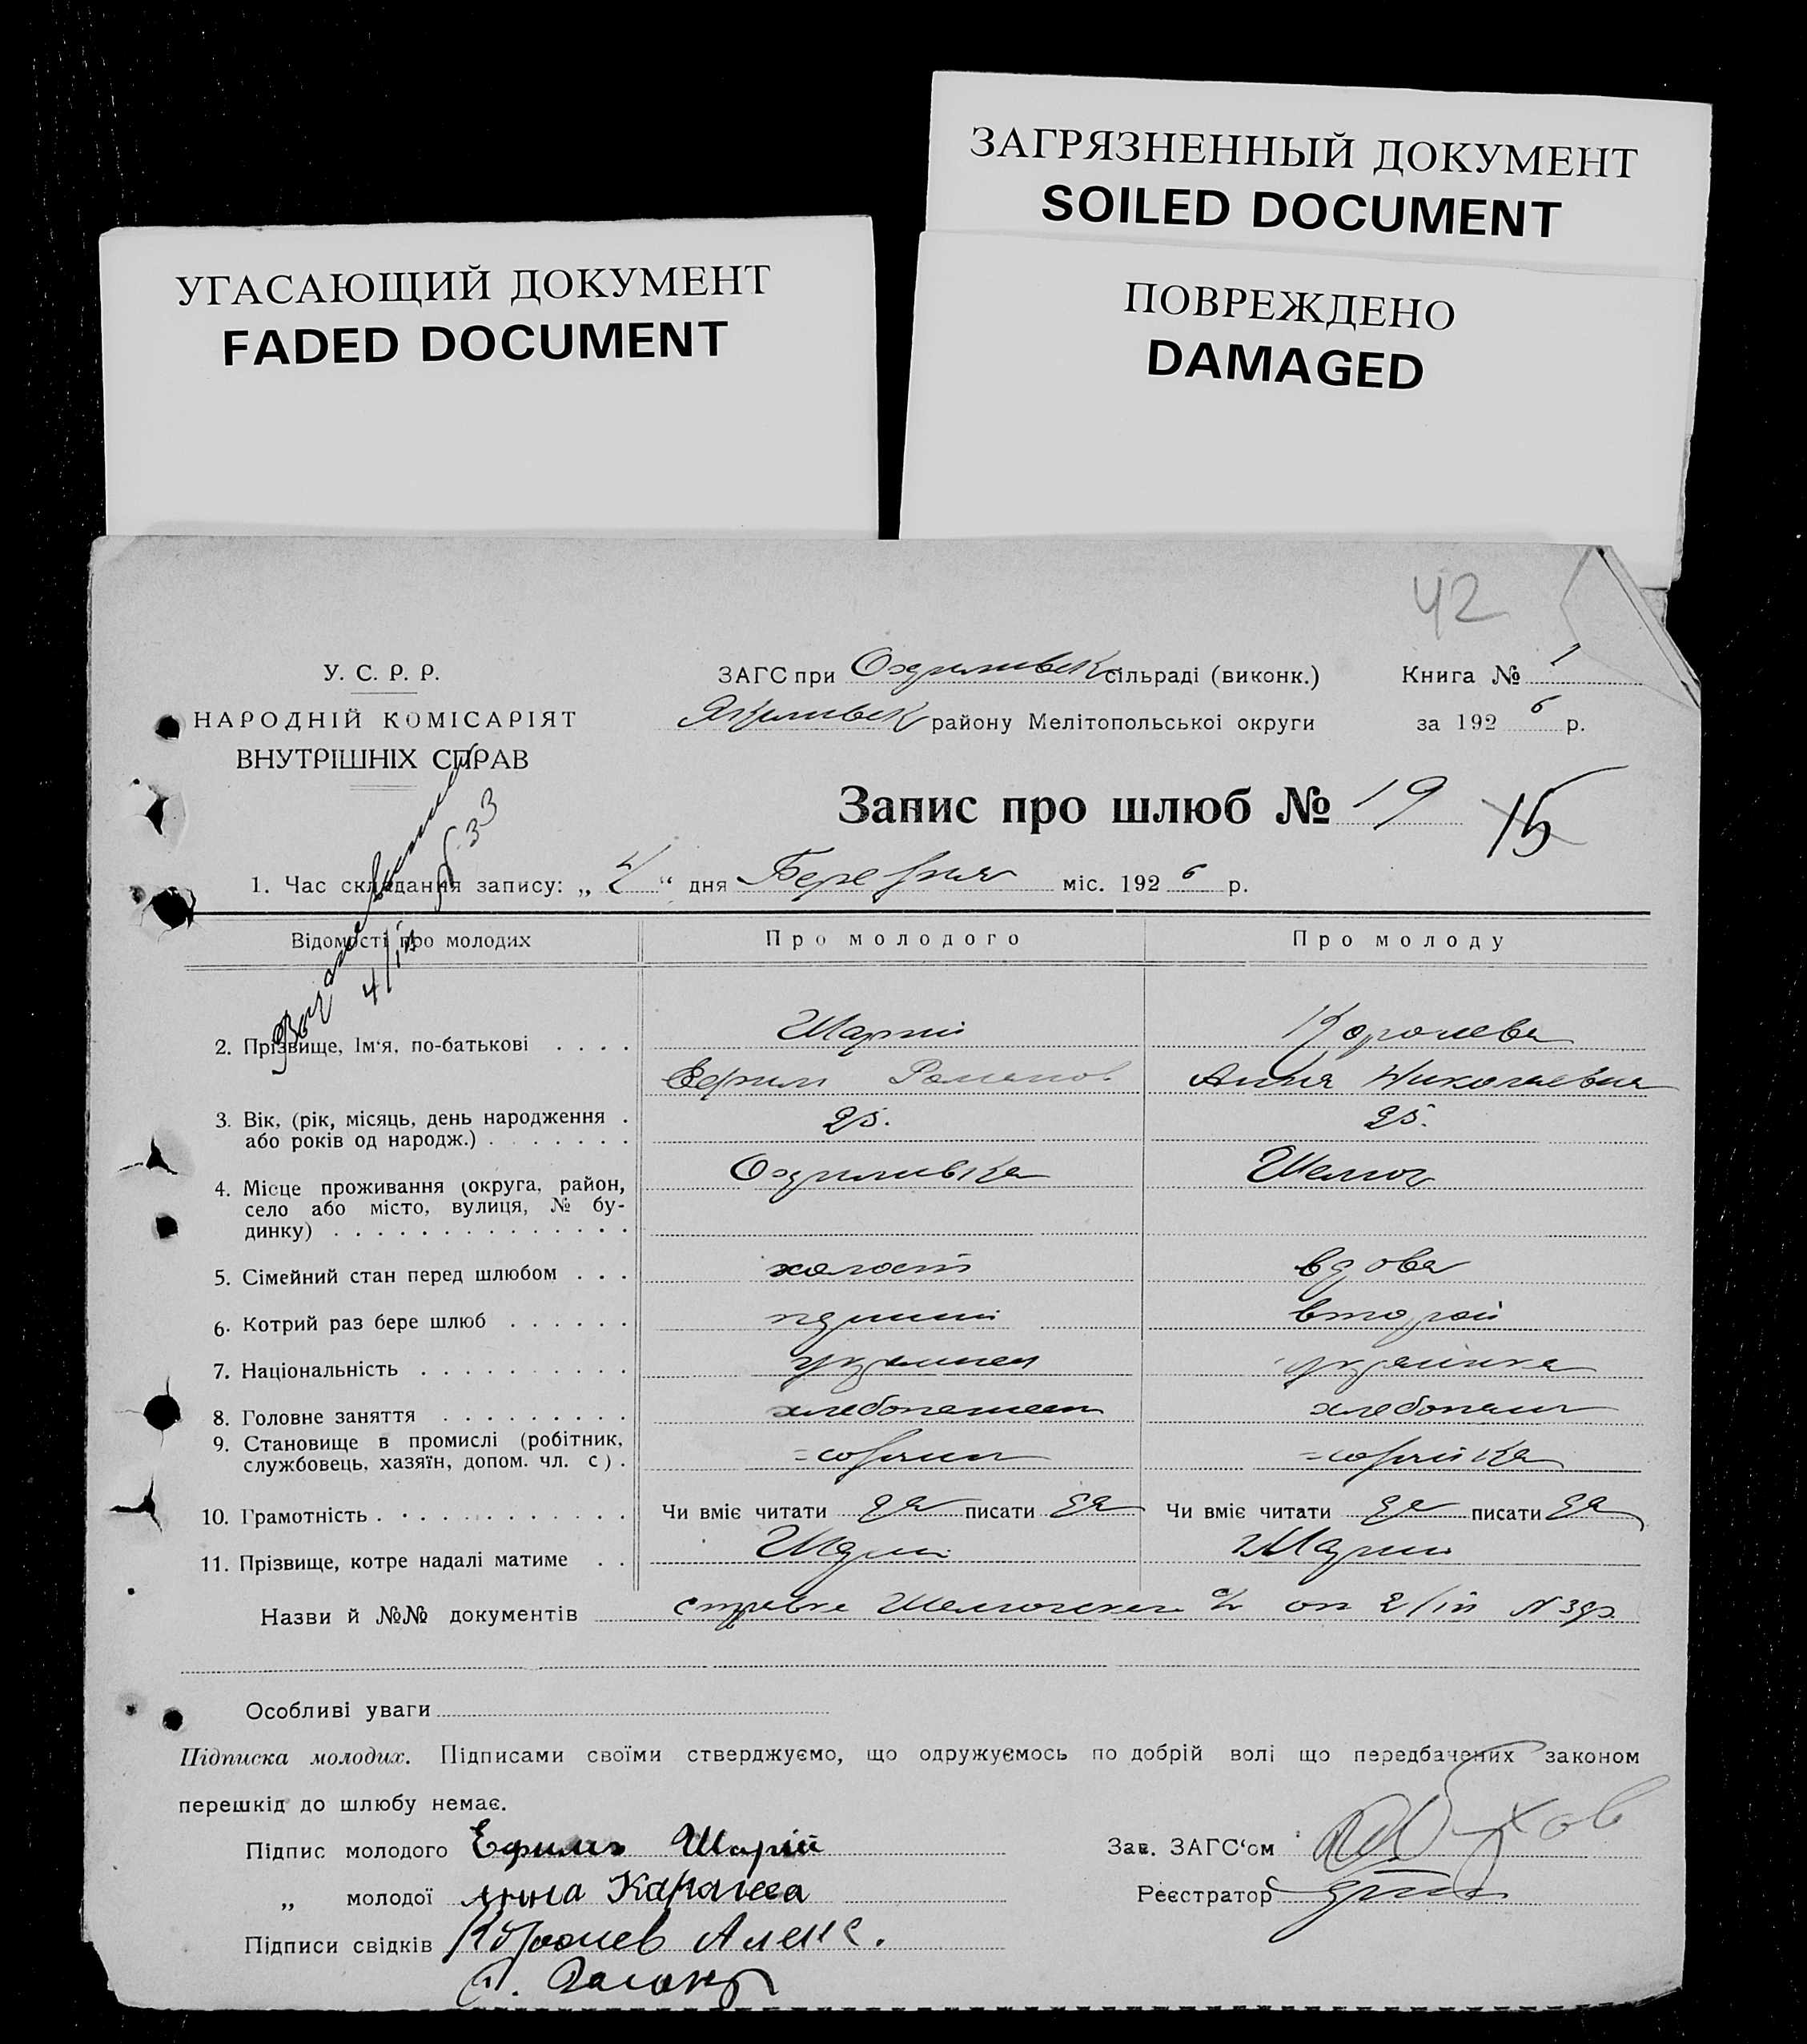 ЗАГРЯЗНЕННЫЙ ДОКУМЕНТ
SOILED DOCUMENT
УГАСАЮЩИЙ ДОКУМЕНТ
FADED DOCUMENT
ПОВРЕЖДЕНО
DAMAGED
42
У. С. Р. Р.
НАРОДНІЙ КОМІСАРІЯТ
ВНУТРІШНІХ СПРАВ
ЗАГС при сільраді (виконк.)
району Мелітопольської округи
Книга № 1
за 1926 р.
Запис про шлюб № 19 15
1. Час складання запису: „ 4 “ дня Березня міс. 1926 р.
Відомості про молодих Про молодого Про молоду
2. Прізвище, Ім‘я, по-батькові . . . . Шарий Королева
Ефим Романов Анна Николаевна
3. Вік, (рік, місяць, день народження . 25. 25.
або років од народж.) . . . . . . .
4. Місце проживання (округа, район,
село або місто, вулиця, № бу-
динку) . . . . . . . . . . . . . .
5. Сімейний стан перед шлюбом . . . холост вдова
6. Котрий раз бере шлюб . . . . . . перший второй
7. Національність . . . . . . . . . . українец українка
8. Головне заняття . . . . . . . . . хлебопашец
9. Становище в промислі (робітник,
службовець, хазяїн, допом. чл. с) .
10. Грамотність . . . . . . . . . . . . Чи вміє читати да писати да Чи вміє читати да писати да
11. Прізвище, котре надалі матиме . . Шарий Шарий
Назви й №№ документів справка от 2/III
Особливі уваги
Підписка молодих. Підписами своїми стверджуємо, що одружуємось по добрій волі що передбачених законом
перешкід до шлюбу немає.
Підпис молодого Ефимъ Шарій
Зав. ЗАГС‘ом
„ молодої Анна
Реєстратор
Підписи свідків Алекс.